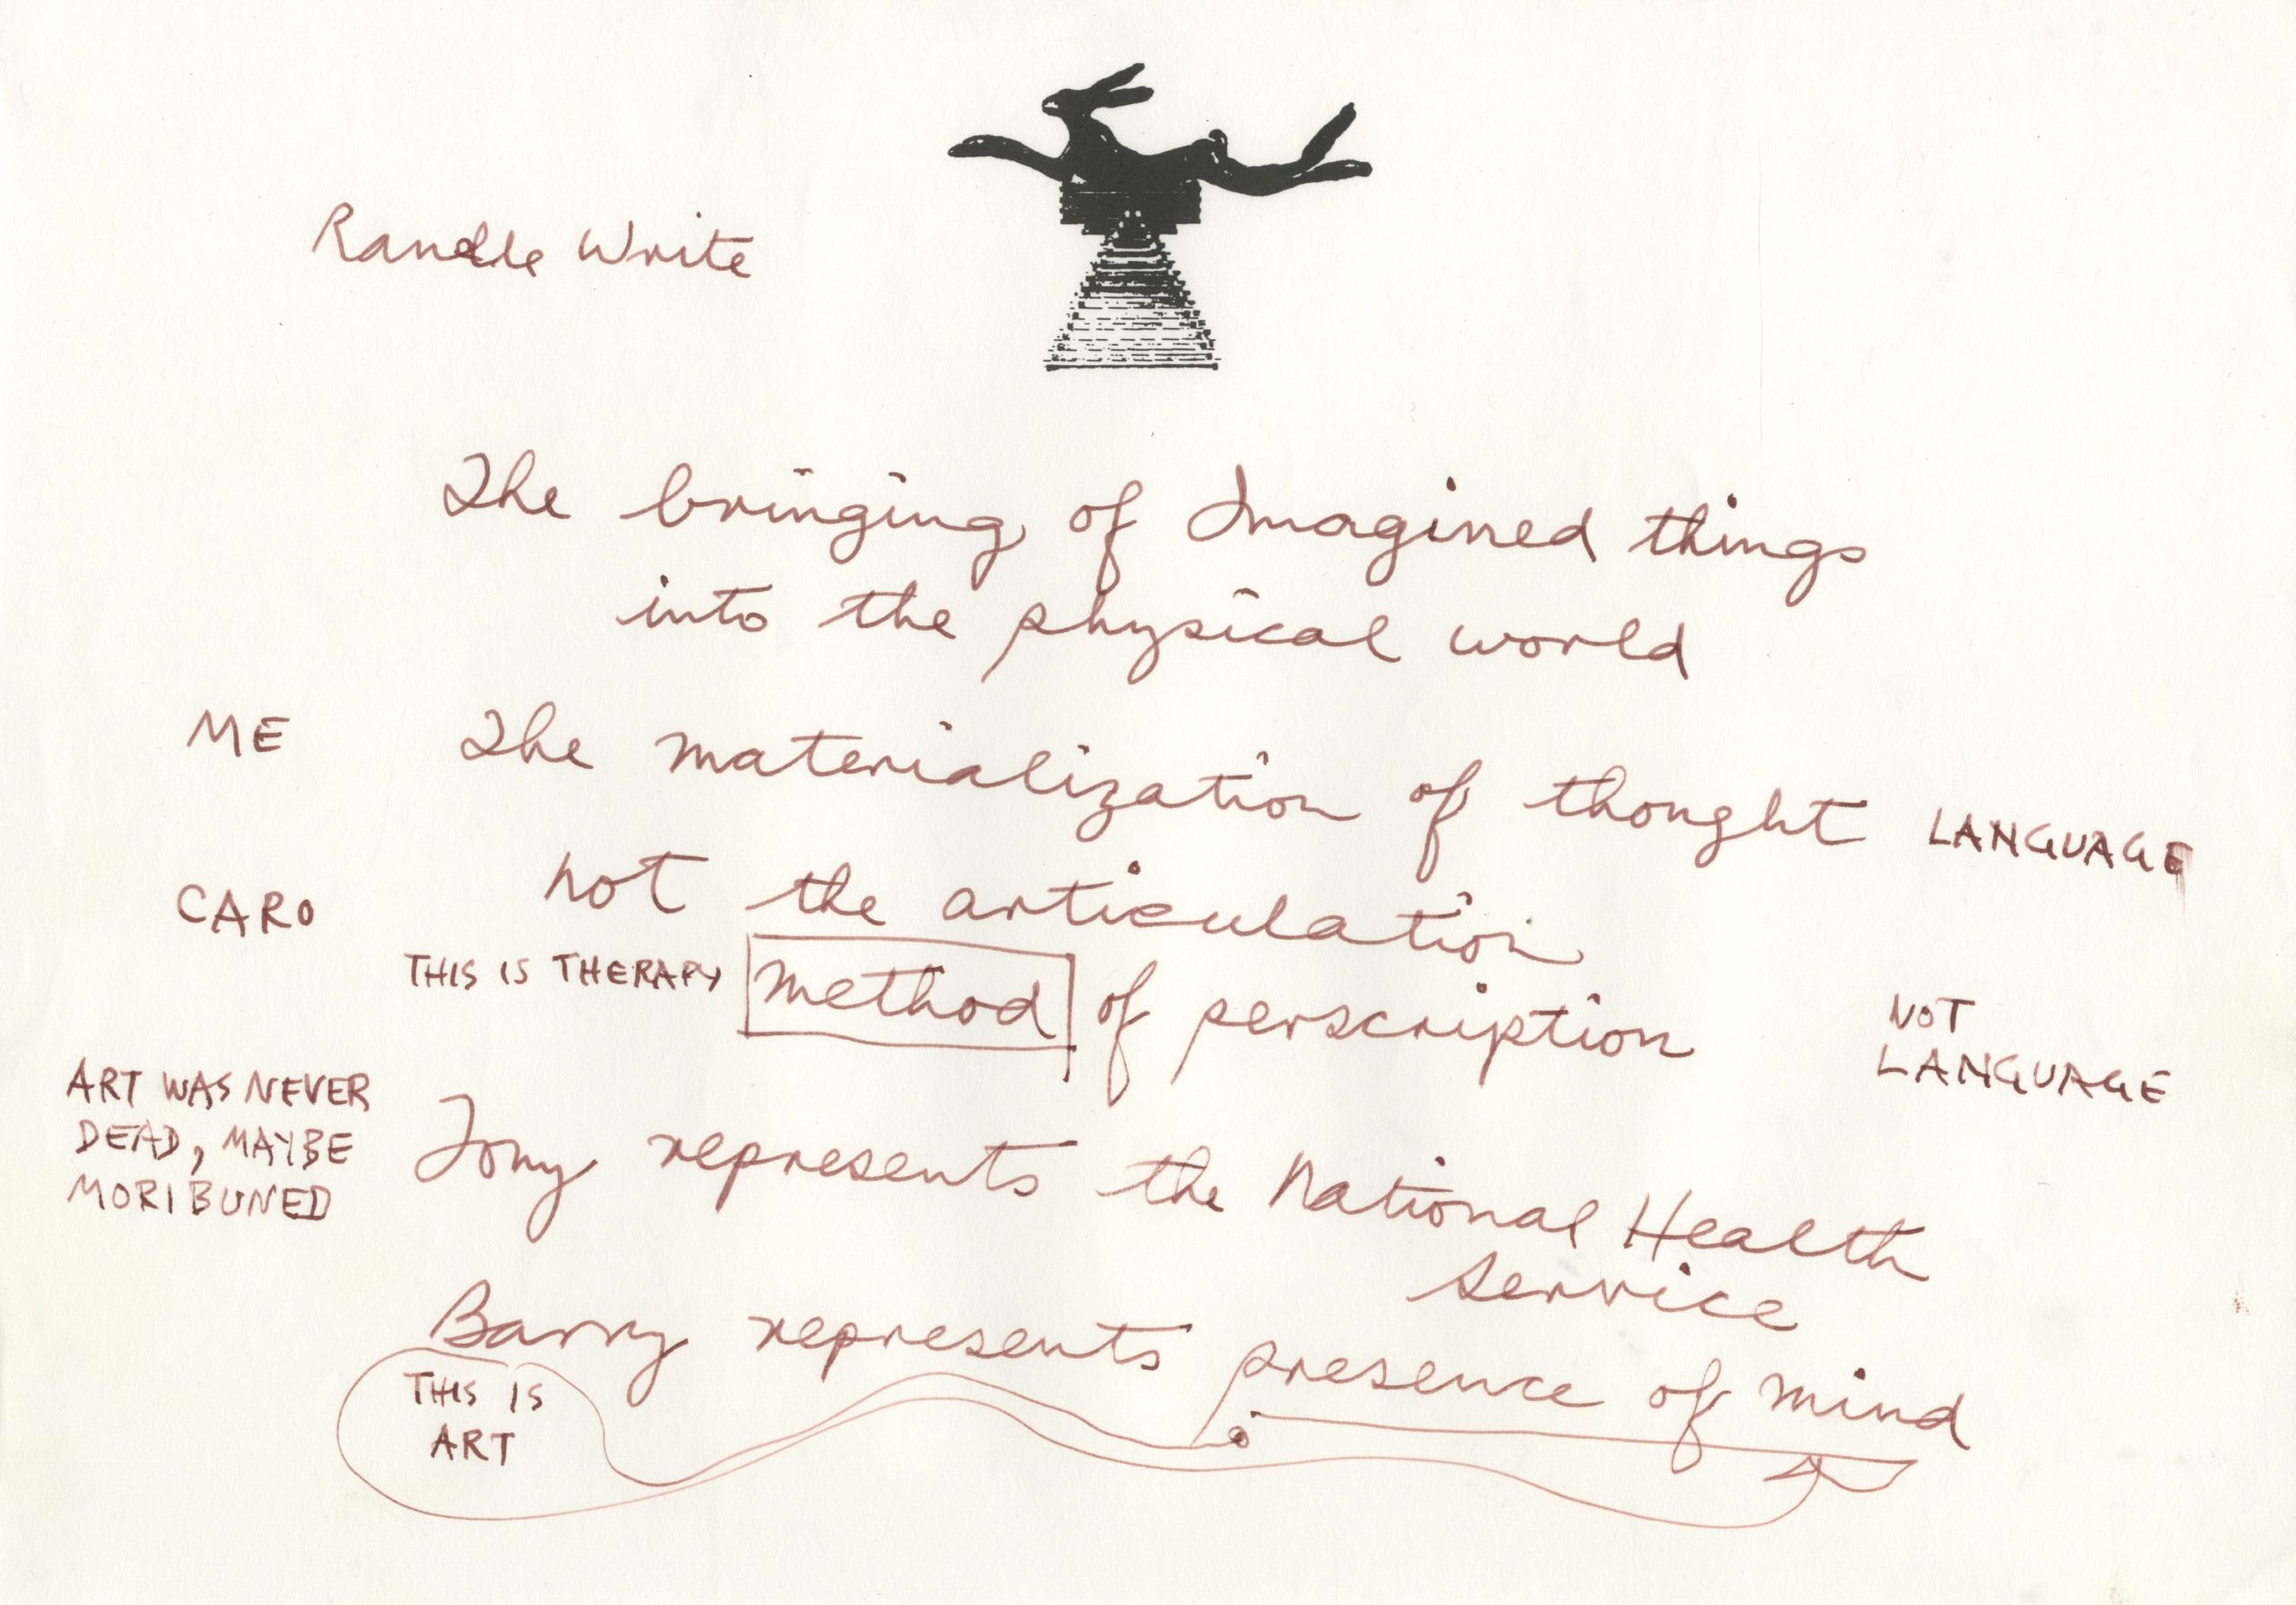 Randle Write
The bringing of Imagined things
into the physical world
ME The materialization of thought LANGUAGE
CARO not the articulation
THIS IS THERAPY method of perscription NOT
LANGUAGE
ART WAS NEVER
DEAD, MAYBE
MORIBUNED
Tony represents the National Health
Service
Barry represents presence of mind
THIS IS
ART